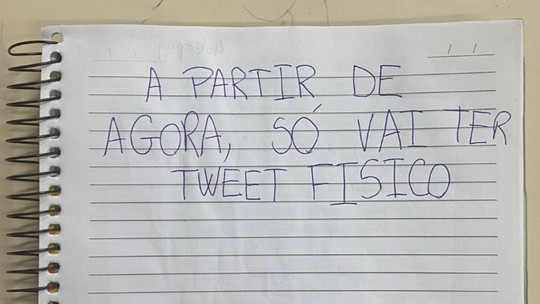 A PARTIR DE
AGORA, SÓ VAI TER
TWEET FISICO